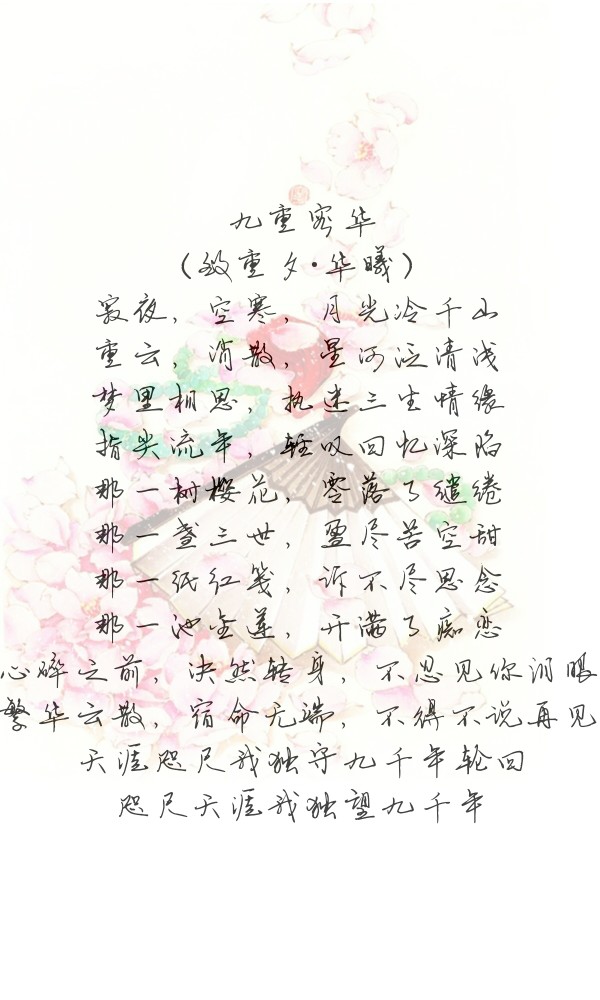 九重容华
（致重夕·华曦）
寂夜，空寒，月光冷千山
重云，消散，星河泛清浅
梦里相思，执迷三生情缘
指尖流年，轻叹回忆深陷
那一树樱花，零落了缱绻
那一盏三世，盈尽苦空甜
那一纸红笺，诉不尽思念
那一池金莲，开满了痴恋
心碎之前，决然转身，不忍见你泪眼
繁华云散，宿命无端，不得不说再见
天涯咫尺我独守九千年轮回
咫尺天涯我独望九千年